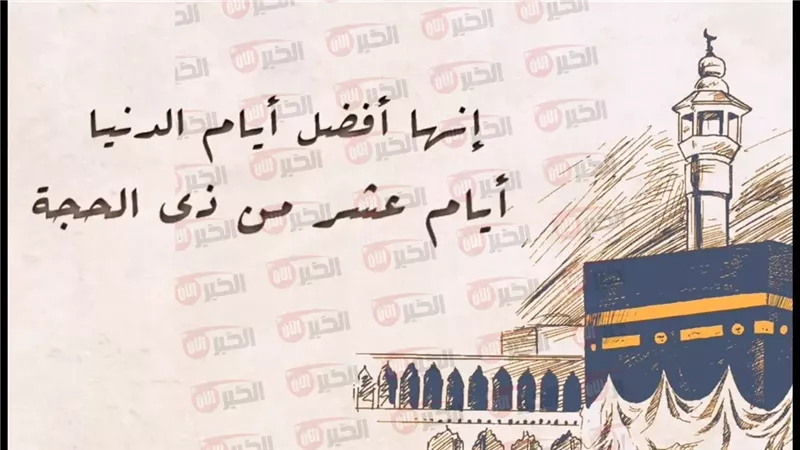 إنها أفضل أيام الدنيا
أيام عشر من ذى الحجة
الخبر الآن